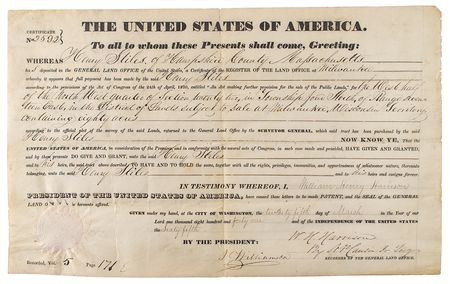 THE UNITED STATES OF AMERICA.
CERTIFICATE
No 2592
To all to whom these Presents shall come, Greeting:
WHEREAS Henry Stiles, of Hampshire County, Massachusetts
has deposited in the GENERAL LAND OFFICE of the United States, a Certificate of the REGISTER OF THE LAND OFFICE at Milwaukee
whereby it appears that full payment has been made by the said Henry Stiles
according to the provisions of the Act of Congress of the 24th of April, 1820, entitled "An Act making further provision for the sale of the Public Lands," for the West half
of the North West quarter of Section twenty two, in Township four North, of Range seven
teen East, in the District of Lands subject to sale at Milwaukee, Wisconsin Territory
containing eighty acres
according to the official plat of the survey of the said Lands, returned to the General Land Office by the SURVEYOR GENERAL, which said tract has been purchased by the said
Henry Stiles NOW KNOW YE, That the
UNITED STATES OF AMERICA, in consideration of the Premises, and in conformity with the several acts of Congress, in such case made and provided, HAVE GIVEN AND GRANTED,
and by these presents DO GIVE AND GRANT, unto the said Henry Stiles
and to his heirs, the said tract above described: TO HAVE AND TO HOLD the same, together with all the rights, privileges, immunities, and appurtenances of whatsoever nature, thereunto
belonging, unto the said Henry Stiles and to his heirs and assigns forever.
IN TESTIMONY WHEREOF, I, William Henry Harrison
PRESIDENT OF THE UNITED STATES OF AMERICA, have caused these Letters to be made PATENT, and the SEAL of the GENERAL
LAND OFFICE to be hereunto affixed.
GIVEN under my hand, at the CITY OF WASHINGTON, the twenty fifth day of March in the Year of our
Lord one thousand eight hundred and forty one and of the INDEPENDENCE OF THE UNITED STATES
the sixty fifth
BY THE PRESIDENT: W. H. Harrison
By Secy.
J. Williamson RECORDER OF THE GENERAL LAND OFFICE.
Recorded, Vol. 5 Page 171